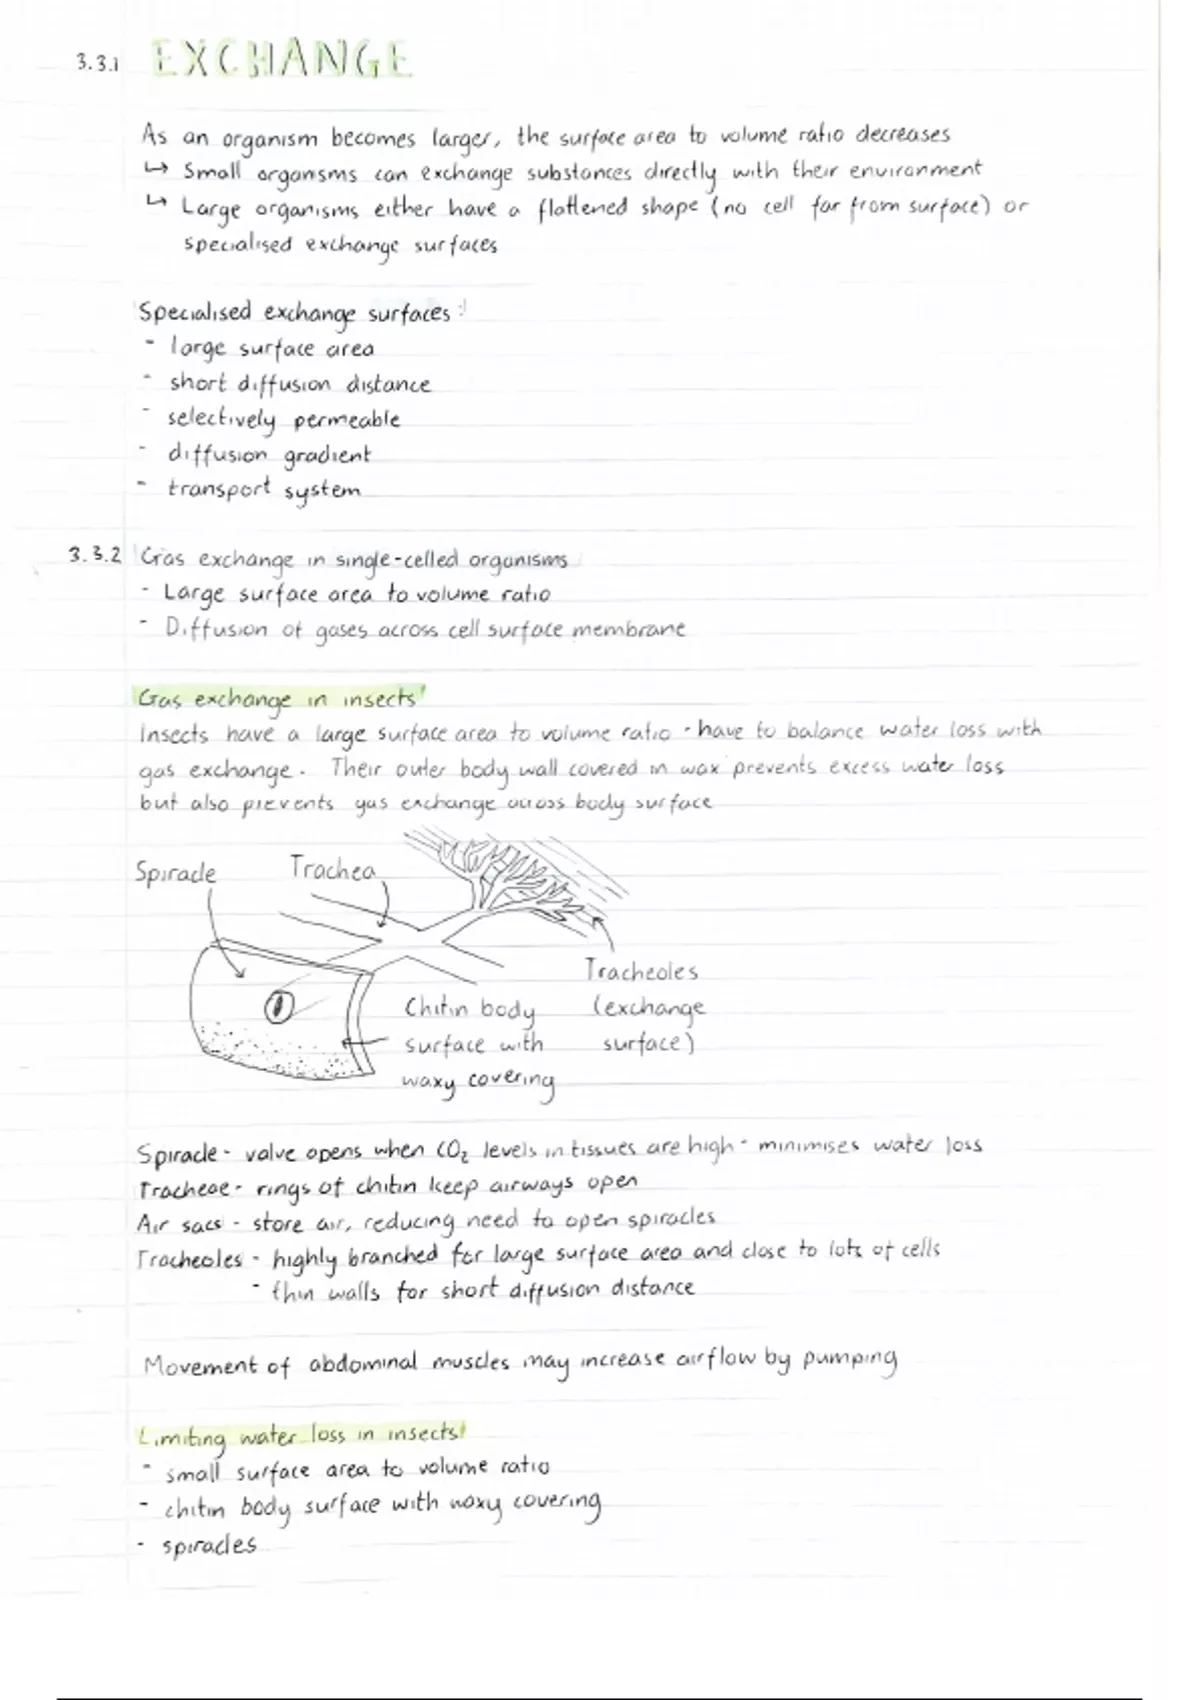 3.3.1 EXCHANGE
As an organism becomes larger, the surface area to volume ratio decreases
↳ Small organisms can exchange substances directly with their environment
↳ Large organisms either have a flattened shape (no cell far from surface) or
specialised exchange surfaces
Specialised exchange surfaces:
- large surface area
- short diffusion distance
- selectively permeable
- diffusion gradient
- transport system
3.3.2 Gas exchange in single-celled organisms
- Large surface area to volume ratio
- Diffusion of gases across cell surface membrane
Gas exchange in insects
Insects have a large surface area to volume ratio - have to balance water loss with
gas exchange. Their outer body wall covered in wax prevents excess water loss
but also prevents gas exchange across body surface
Spiracle
Trachea
Tracheoles
(exchange
surface)
Chitin body
surface with
waxy covering
Spiracle - valve opens when CO₂ levels in tissues are high - minimises water loss
Tracheae - rings of chitin keep airways open
Air sacs - store air, reducing need to open spiracles
Tracheoles - highly branched for large surface area and close to lots of cells
- thin walls for short diffusion distance
Movement of abdominal muscles may increase airflow by pumping
Limiting water loss in insects
- small surface area to volume ratio
- chitin body surface with waxy covering
- spiracles